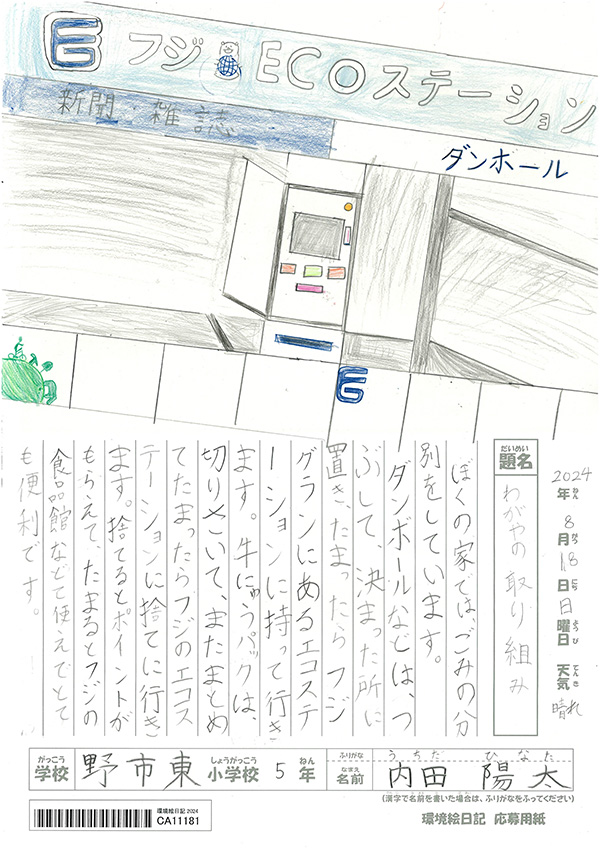 E フジ ECOステーション
新聞・雑誌
ダンボール
E
題名
だいめい
わがやの取り組み
2024年8月18日日曜日 天気晴れ
ねん がつ にち ようび てんき
ぼくの家では、ごみの分
別をしています。
ダンボールなどは、つ
ぶして、決まった所に
置き、たまったらフジ
グランにあるエコステ
ーションに持って行き
ます。牛にゅうパックは、
切りさいて、またまとめ
てたまったらフジのエコス
テーションに捨てに行き
ます。捨てるとポイントが
もらえて、たまるとフジの
食品館などで使えてとて
も便利です。
がっこう しょうがっこう ねん ふりがな うちだ ひなた
学校 野市東 小学校 5 年 なまえ 名前 内田 陽太
(漢字で名前を書いた場合は、ふりがなをふってください)
環境絵日記2024
CA11181
環境絵日記 応募用紙